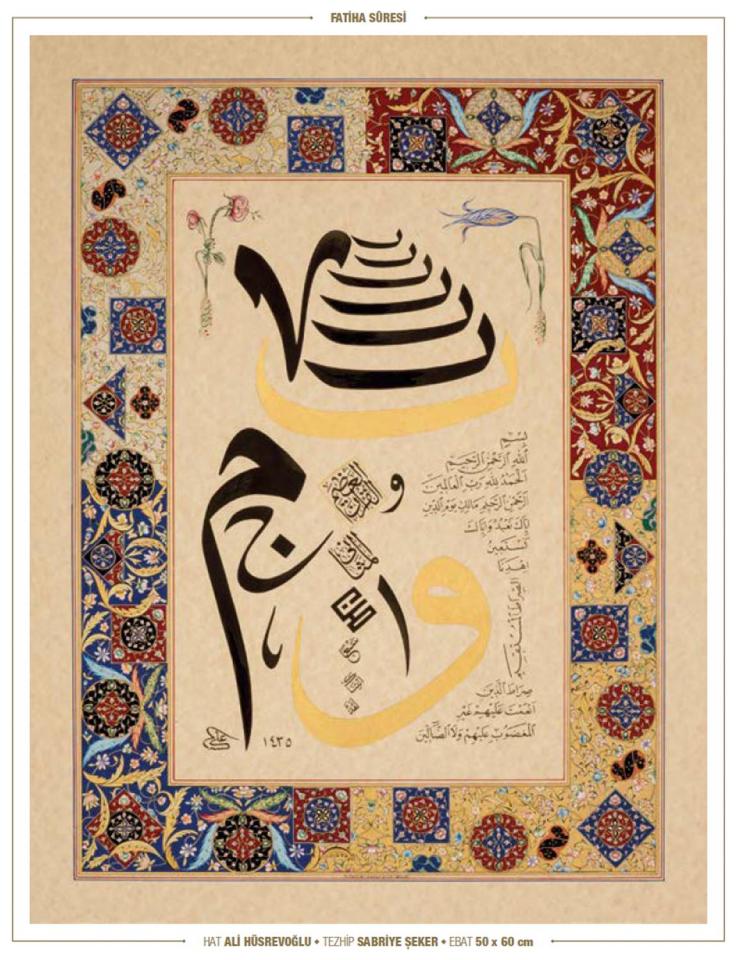 FATİHA SÛRESİ
بِسْمِ
اللّٰهِ الرَّحْمٰنِ الرَّحِيمِ
اَلْحَمْدُ لِلّٰهِ رَبِّ الْعَالَمِينَ
اَلرَّحْمٰنِ الرَّحِيمِ مَالِكِ يَوْمِ الدِّينِ
اِيَّاكَ نَعْبُدُ وَاِيَّاكَ
نَسْتَعِينُ
اِهْدِنَا
الصِّرَاطَ الْمُسْتَقِيمَ
صِرَاطَ الَّذِينَ
اَنْعَمْتَ عَلَيْهِمْ غَيْرِ
الْمَغْضُوبِ عَلَيْهِمْ وَلَا الضَّالِّينَ
و
القرآن العظيم
علي ١٤٣٥
HAT ALİ HÜSREVOĞLU ♦ TEZHİP SABRİYE ŞEKER ♦ EBAT 50 x 60 cm